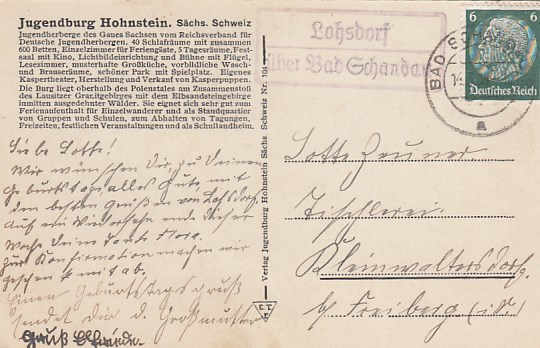 Jugendburg Hohnstein. Sächs. Schweiz
Jugendherberge des Gaues Sachsen vom Reichsverband für
Deutsche Jugendherbergen. 40 Schlafräume mit zusammen
600 Betten, Einzelzimmer für Familiengäste, 5 Tagesräume, Fest-
saal mit Kino, Lichtbildeinrichtung und Bühne mit Flügel,
Lesezimmer, musterhafte Großküche, vorbildliche Wasch-
und Brauseräume, schöner Park mit Spielplatz. Eigenes
Kaspertheater, Herstellung und Verkauf von Kasperpuppen.
Die Burg liegt oberhalb des Polenztales am Zusammenstoß
des Lausitzer Granitgebirges mit dem Elbsandsteingebirge
inmitten ausgedehnter Wälder. Sie eignet sich sehr gut zum
Ferienaufenthalt für Einzelwanderer und als Standquartier
von Gruppen und Schulen, zum Abhalten von Tagungen,
Freizeiten, festlichen Veranstaltungen und als Schullandheim.
Liebe Lotte!
Wir wünschen Dir zu Deinem
Geburtstage alles Gute mit
den besten Grüßen von Lohsdorf
Auf ein Wiedersehn Ende dieser
Woche Deine Tante Flora.
Zur Konfirmation machen wir
Einen Geburtstagsgruß
sendet Dir d. Großmutter
Gruß Elfriede.
Verlag Jugendburg Hohnstein Sächs. Schweiz Nr. 101
Lohsdorf
über Bad Schandau
6 6
Deutsches Reich
BAD SCHANDAU
a
Lotte Zeuner
Tischlerei.
Kleinwaltersdorf
b/ Freiberg (i. S.)